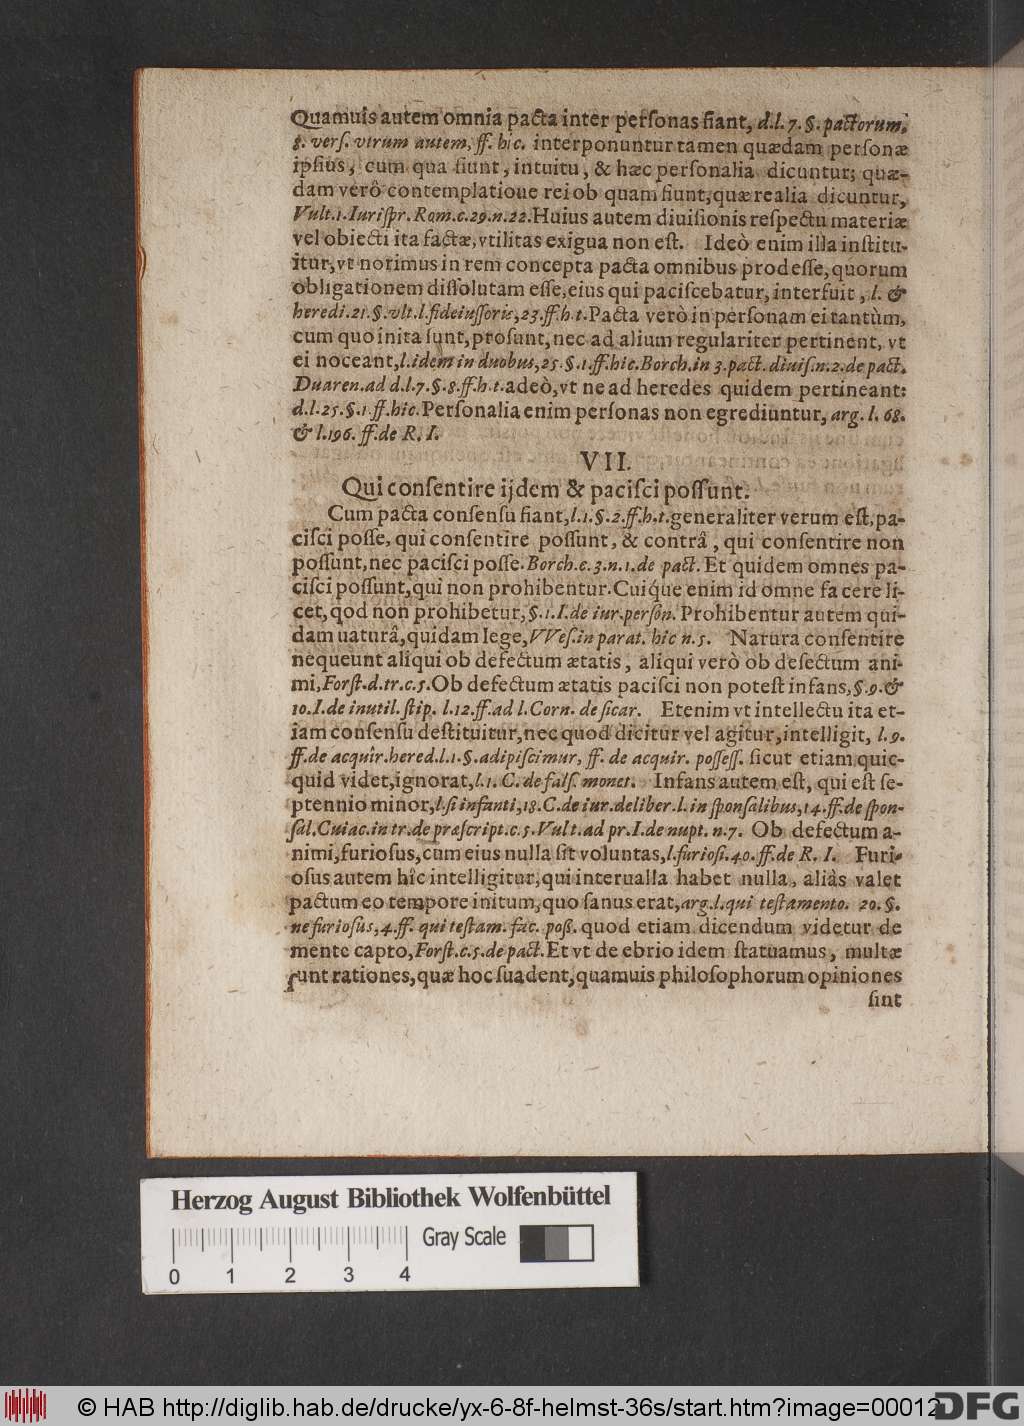 Quamuis autem omnia pacta inter perſonas fiant, d.l. 7. §. pactorum,
8. verſ. vtrum autem, ff. hic. interponuntur tamen quædam perſonæ
ipſius, cum qua fiunt, intuitu, & hæc perſonalia dicuntur; quæ-
dam verò contemplatioue rei ob quam fiunt, quæ realia dicuntur,
Vult. 1. Iuriſpr. Rom. c. 29. n. 22. Huius autem diuiſionis reſpectu materiæ
vel obiecti ita factæ, vtilitas exigua non eſt. Ideò enim illa inſtitu-
itur, vt norimus in rem concepta pacta omnibus prodeſſe, quorum
obligationem diſſolutam eſſe, eius qui paciſcebatur, interfuit, l. &
heredi. 21. §. vlt. l. fideiuſſoris, 23. ff. h. t. Pacta verò in perſonam ei tantùm,
cum quo inita ſunt, proſunt, nec ad alium regulariter pertinent, vt
ei noceant, l. idem in duobus, 25. §. 1. ff. hic. Borch. in 3. pact. diuiſ. n. 2. de pact.
Duaren. ad d. l. 7. §. 8. ff. h. t. adeò, vt ne ad heredes quidem pertineant:
d. l. 25. §. 1. ff. hic. Perſonalia enim perſonas non egrediuntur, arg. l. 68.
& l. 196. ff. de R. I.
VII.
Qui conſentire ijdem & paciſci poſſunt.
Cum pacta conſenſu fiant, l. 1. §. 2. ff. h. t. generaliter verum eſt, pa-
ciſci poſſe, qui conſentire poſſunt, & contrâ, qui conſentire non
poſſunt, nec paciſci poſſe. Borch. c. 3. n. 1. de pact. Et quidem omnes pa-
ciſci poſſunt, qui non prohibentur. Cuiq́ue enim id omne facere li-
cet, qod non prohibetur, §. 1. I. de iur. perſon. Prohibentur autem qui-
dam uaturâ, quidam lege, VVeſ. in parat. hic n. 5. Natura conſentire
nequeunt aliqui ob defectum ætatis, aliqui verò ob defectum ani-
mi, Forſt. d. tr. c. 5. Ob defectum ætatis paciſci non poteſt infans, §. 9. &
10. I. de inutil. ſtip. l. 12. ff. ad l. Corn. de ſicar. Etenim vt intellectu ita et-
iam conſenſu deſtituitur, nec quod dicitur vel agitur, intelligit, l. 9.
ff. de acquir. hered. l. 1. §. adipiſcimur, ff. de acquir. poſſeſſ. ſicut etiam quic-
quid videt, ignorat, l. 1. C. de falſ. monet. Infans autem eſt, qui eſt ſe-
ptennio minor, l. ſi infanti, 18. C. de iur. deliber. l. in ſponſalibus, 14. ff. de ſpon-
ſal. Cuiac. in tr. de præſcript. c. 5. Vult. ad pr. I. de nupt. n. 7. Ob defectum a-
nimi, furioſus, cum eius nulla ſit voluntas, l. furioſi. 40. ff. de R. I. Furi-
oſus autem hîc intelligitur, qui interualla habet nulla, aliàs valet
pactum eo tempore initum, quo ſanus erat, arg. l. qui teſtamento. 20. §.
ne furioſus, 4. ff. qui teſtam. fac. poſſ. quod etiam dicendum videtur de
mente capto, Forſt. c. 5. de pact. Et vt de ebrio idem ſtatuamus, multæ
ſunt rationes, quæ hoc ſuadent, quamuis philoſophorum opiniones
ſint
Herzog August Bibliothek Wolfenbüttel
Gray Scale
0 1 2 3 4
© HAB http://diglib.hab.de/drucke/yx-6-8f-helmst-36s/start.htm?image=00012
DFG